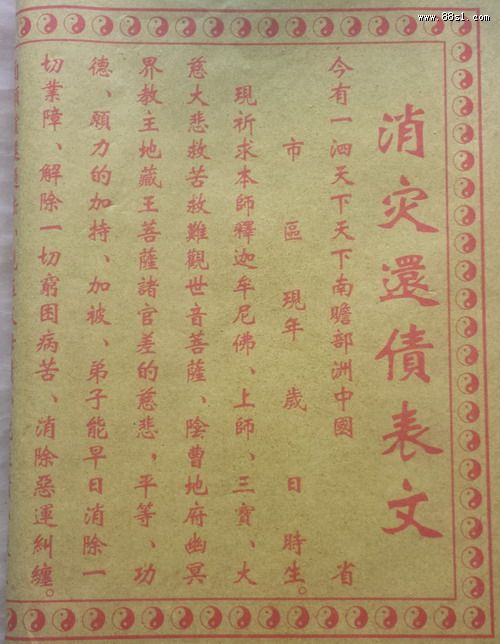 www.88sl.com
消灾還債表文
今有一泗天下天下南贍部洲中國 省
市 區 現年 歲 日 時生。
現祈求本師釋迦牟尼佛、上師、三寶、大
慈大悲救苦救難觀世音菩薩、陰曹地府幽冥
界教主地藏王菩薩諸官差的慈悲，平等、功
德、願力的加持、加被、弟子能早日消除一
切業障、解除一切窮困病苦、消除惡運糾纏。